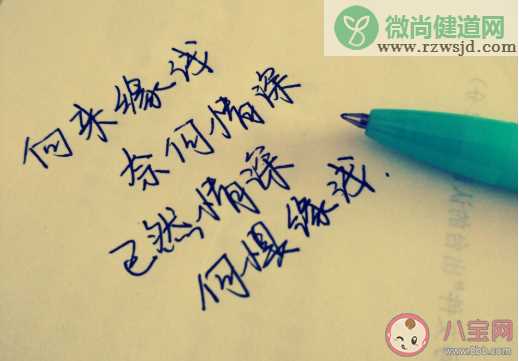 微尚健道网
www.rzwsjd.com
向来缘浅
奈何情深
已然情深
何惧缘浅.
八宝网
www.8bb.com